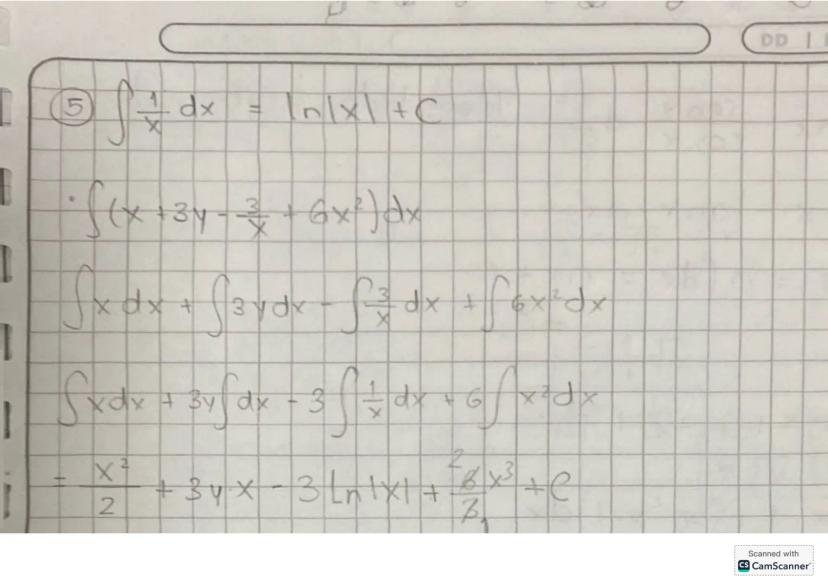 DD |
⑤ ∫ 1/x dx = ln|x| + C
· ∫(x + 3y - 3/x + 6x²)dx
∫x dx + ∫3y dx - ∫3/x dx + ∫6x² dx
∫x dx + 3y∫dx - 3∫1/x dx + 6∫x² dx
= x²/2 + 3yx - 3 Ln|x| + 6/3 x³ + C
2
1
Scanned with
CS CamScanner